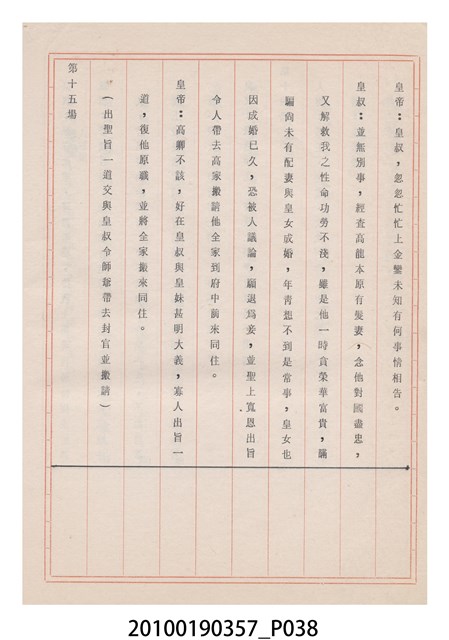 皇帝：皇叔，忽忽忙忙上金鑾未知有何事情相告。
皇叔：並無別事，經查高龍本原有髮妻，念他對國盡忠，
又解救我之性命功勞不淺，雖是他一時貪榮華富貴，瞞
騙尚未有配妻與皇女成婚，年青想不到是常事，皇女也
因成婚已久，恐被人議論，願退為妾，並聖上寬恩出旨
令人帶去高家搬請他全家到府中前來同住。
皇帝：高卿不該，好在皇叔與皇妹甚明大義，寡人出旨一
道，復他原職，並將全家搬來同住。
（出聖旨一道交與皇叔令師爺帶去封官並搬請）
第十五場
20100190357_P038